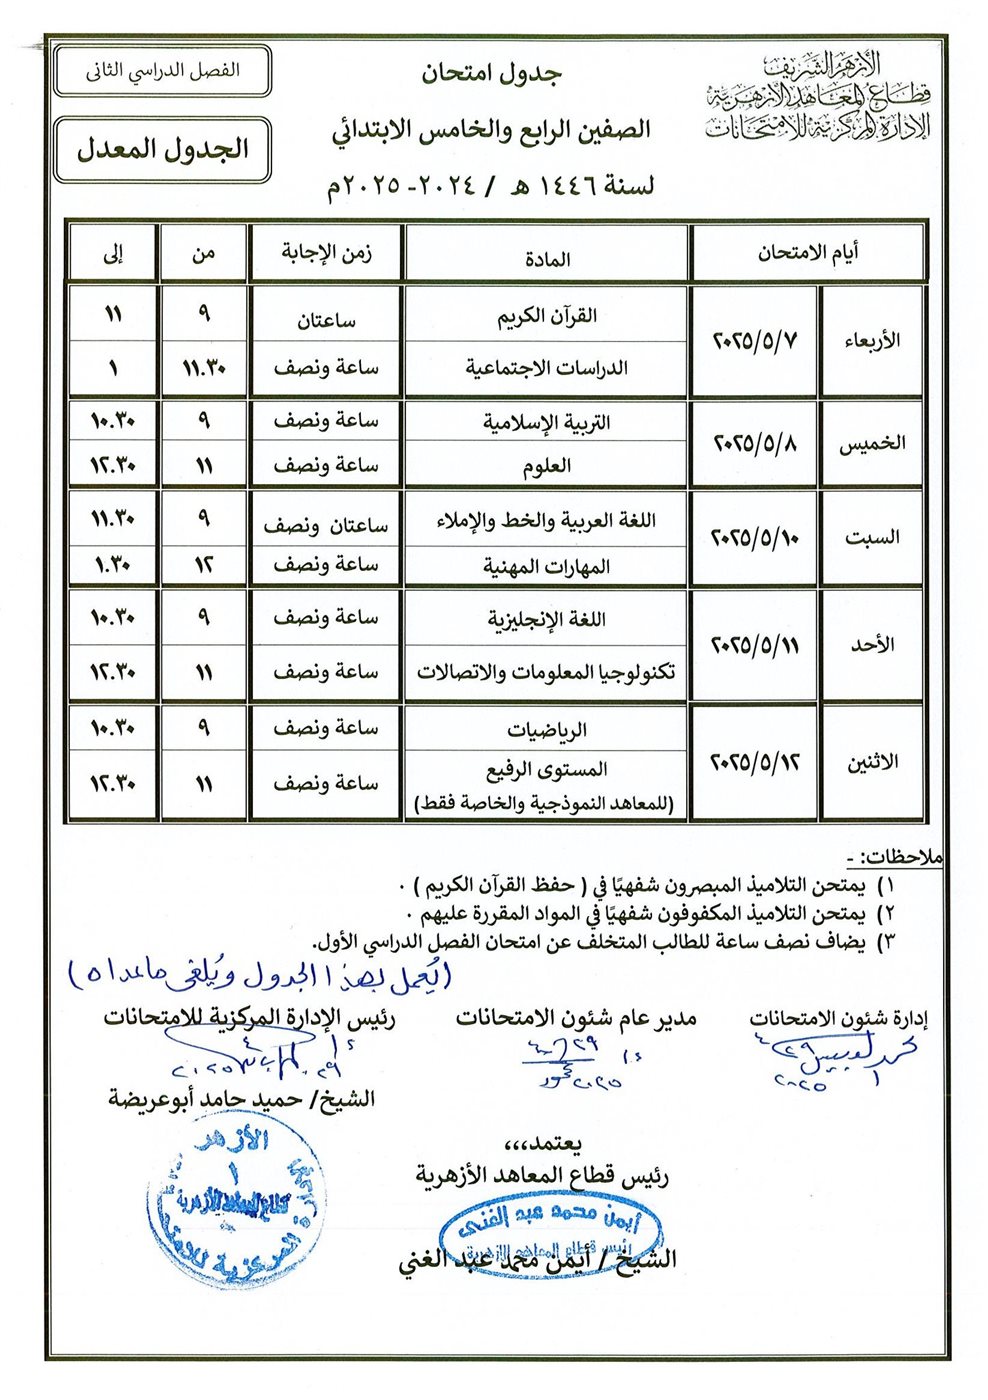 الأزهر الشريف
قطاع المعاهد الأزهرية
الإدارة المركزية للامتحانات
جدول امتحان
الصفين الرابع والخامس الابتدائي
لسنة ١٤٤٦ هـ / ٢٠٢٤- ٢٠٢٥م
الفصل الدراسي الثانى
الجدول المعدل
أيام الامتحان المادة زمن الإجابة من إلى
الأربعاء ٢٠٢٥/٥/٧ القرآن الكريم ساعتان ٩ ١١
الدراسات الاجتماعية ساعة ونصف ١١.٣٠ ١
الخميس ٢٠٢٥/٥/٨ التربية الإسلامية ساعة ونصف ٩ ١٠.٣٠
العلوم ساعة ونصف ١١ ١٢.٣٠
السبت ٢٠٢٥/٥/١٠ اللغة العربية والخط والإملاء ساعتان ونصف ٩ ١١.٣٠
المهارات المهنية ساعة ونصف ١٢ ١.٣٠
الأحد ٢٠٢٥/٥/١١ اللغة الإنجليزية ساعة ونصف ٩ ١٠.٣٠
تكنولوجيا المعلومات والاتصالات ساعة ونصف ١١ ١٢.٣٠
الاثنين ٢٠٢٥/٥/١٢ الرياضيات ساعة ونصف ٩ ١٠.٣٠
المستوى الرفيع ساعة ونصف ١١ ١٢.٣٠
(للمعاهد النموذجية والخاصة فقط)
ملاحظات: -
١) يمتحن التلاميذ المبصرون شفهيًا في ( حفظ القرآن الكريم ) ٠
٢) يمتحن التلاميذ المكفوفون شفهيًا في المواد المقررة عليهم ٠
٣) يضاف نصف ساعة للطالب المتخلف عن امتحان الفصل الدراسي الأول.
(يُعمل بهذا الجدول ويُلغى ماعداه)
إدارة شئون الامتحانات مدير عام شئون الامتحانات رئيس الإدارة المركزية للامتحانات
٢٠٢٥ ٢٠٢٥ ٢٠٢٥
الشيخ/ حميد حامد أبوعريضة
الأزهر
قطاع المعاهد الأزهرية
المركزية للامتحا
يعتمد،،،
رئيس قطاع المعاهد الأزهرية
أيمن محمد عبد الغنى
رئيس قطاع المعاهد الأزهرية
الشيخ / أيمن محمد عبد الغني